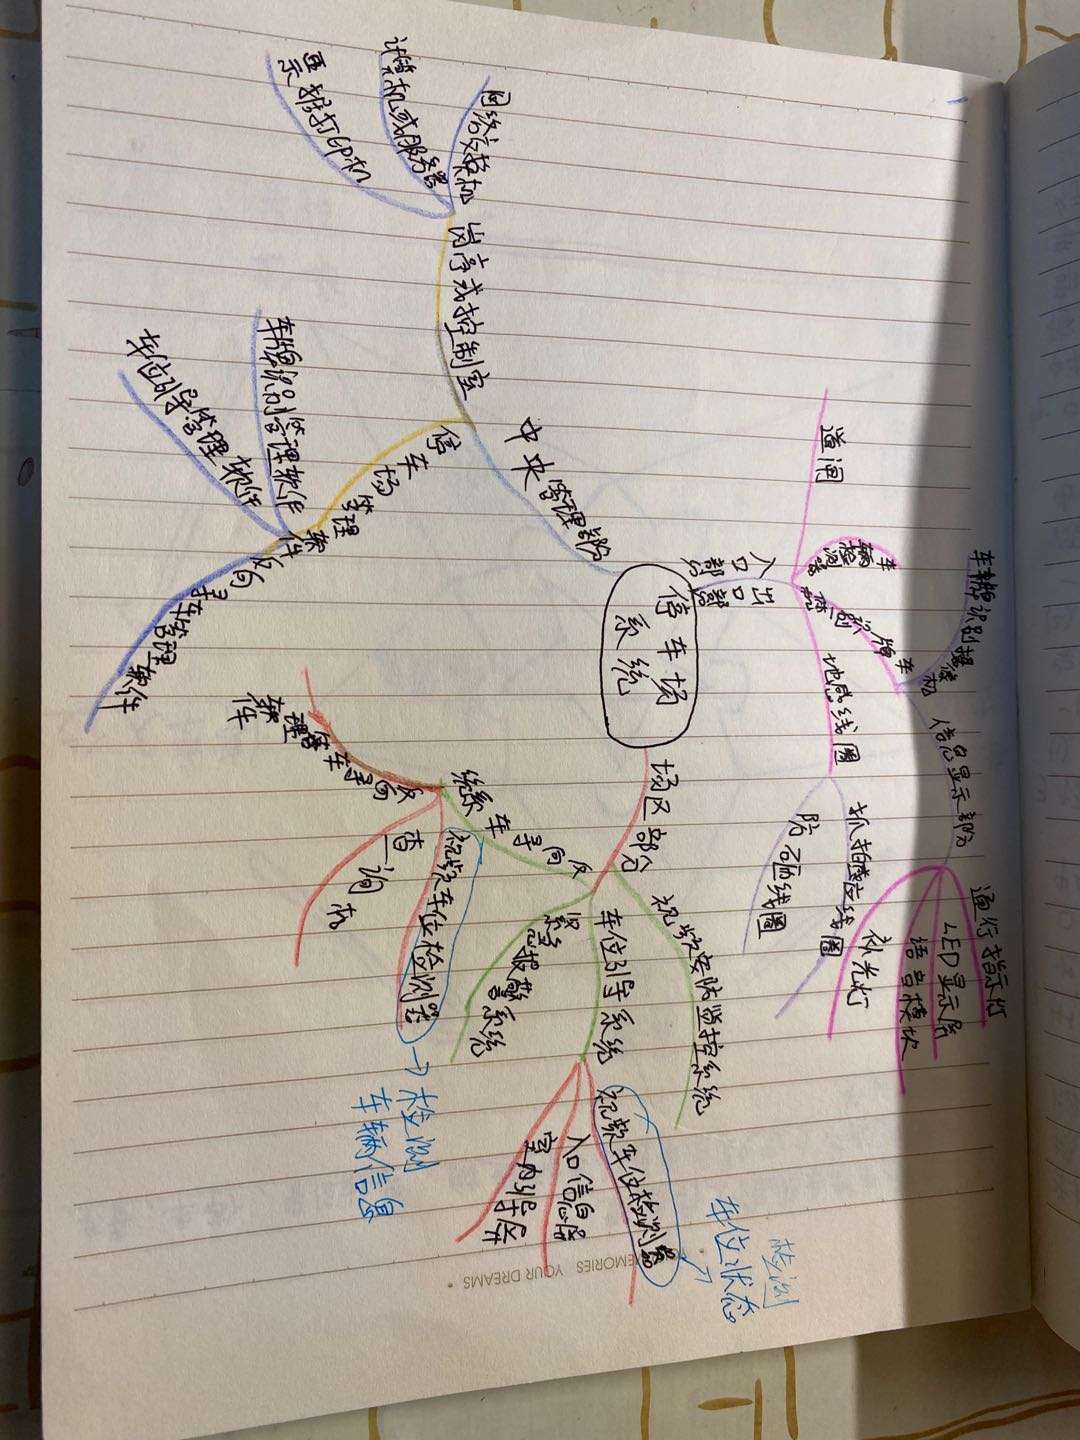 停车场
系统
中央管理部分
岗亭或控制室
网络交换机
计算机或服务器
停车场管理软件
车牌识别管理软件
车位引导管理软件
反向寻车管理软件
入口部分
出口部分
道闸
车辆检测器
车牌识别
车牌识别摄像机
信息显示部分
通行指示灯
LED显示屏
语音模块
补光灯
地感线圈
抓拍感应线圈
防砸线圈
场区部分
视频安防监控系统
车位引导系统
视频车位检测器
检测
车位状态
入口信息屏
室内引导屏
紧急报警系统
反向寻车系统
视频车位检测器
→检测
车辆信息
查询机
反向寻车管理
软件
MEMORIES YOUR DREAMS